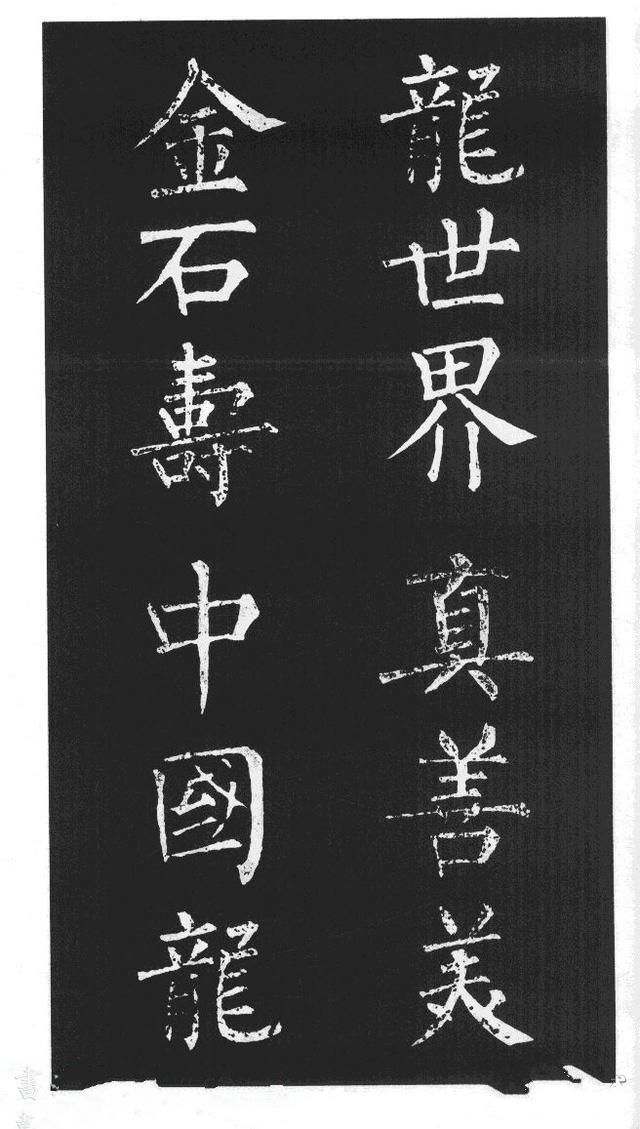 龍世界真善美
金石壽中國龍